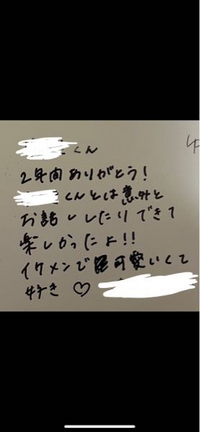 くん
2年間ありがとう!
くんとは意外と
お話ししたりできて
楽しかったよ!!
イケメンで可愛いくて
好き♡